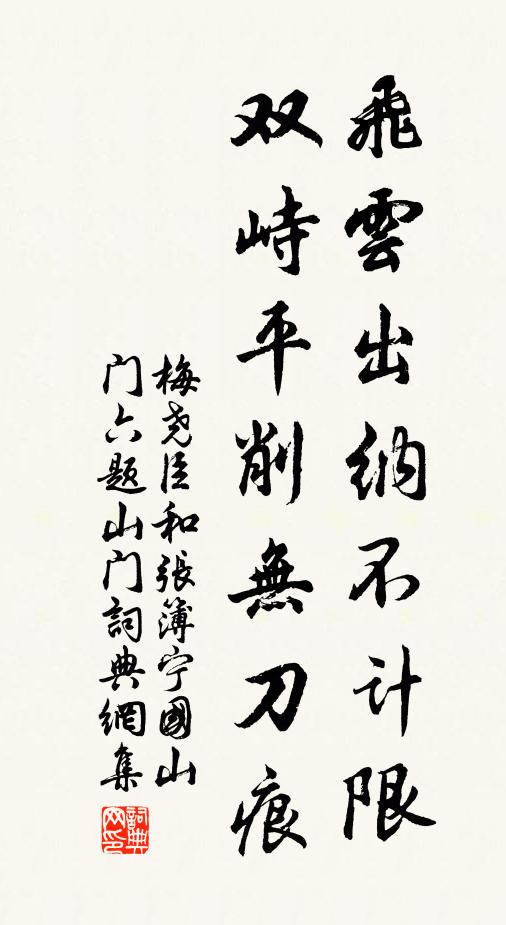 飛雲出納不计限
双峙平削無刀痕
梅尧臣和張簿宁國山
门六题山门詞典網集
詞典
网印